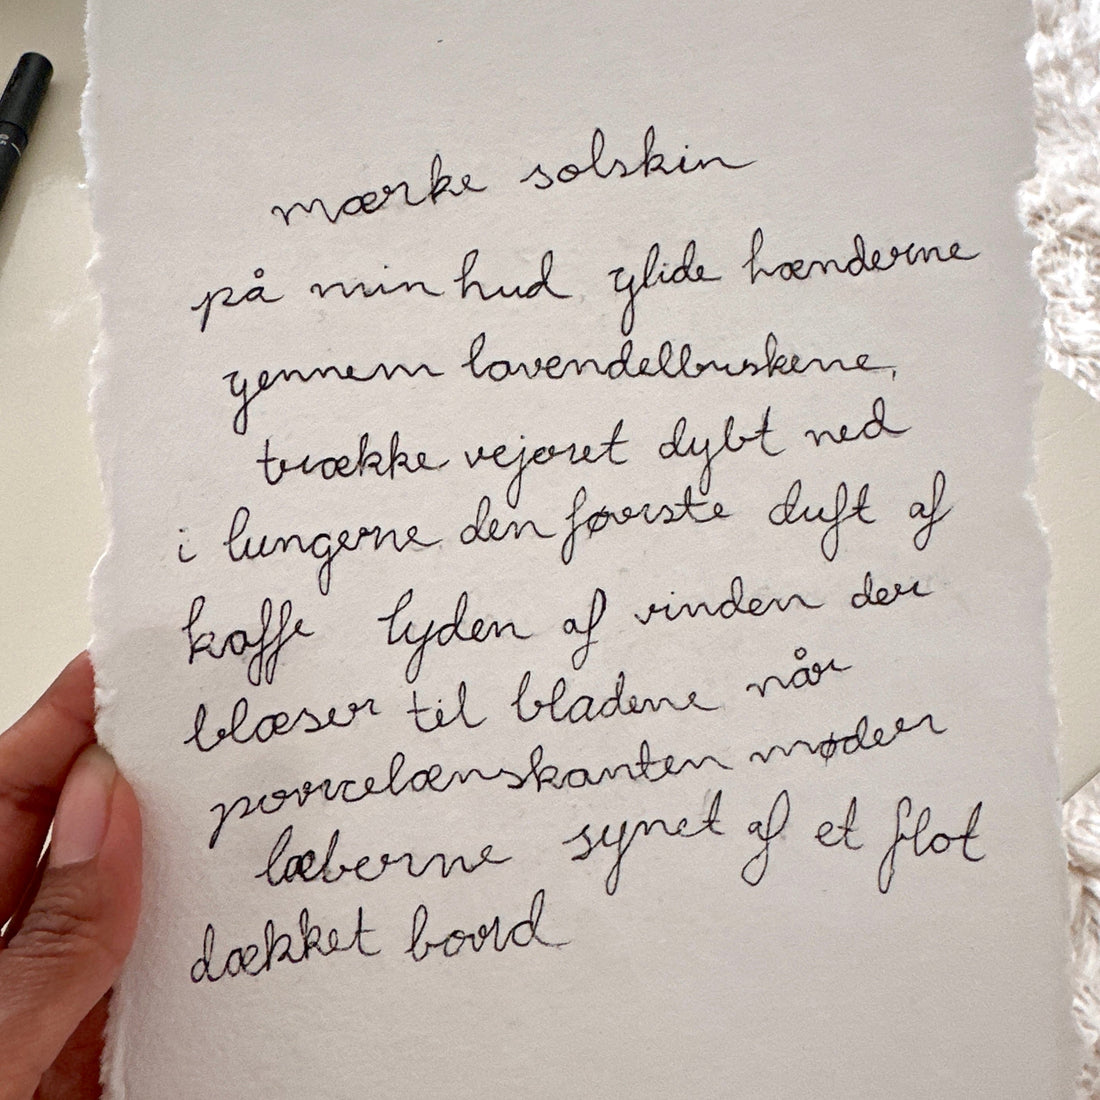 mærke solskin
på min hud glide hænderne
gennem lavendelbuskene,
trække vejret dybt ned
i lungerne den første duft af
kaffe lyden af vinden der
blæser til bladene når
porcelænskanten møder
læberne synet af et flot
dækket bord